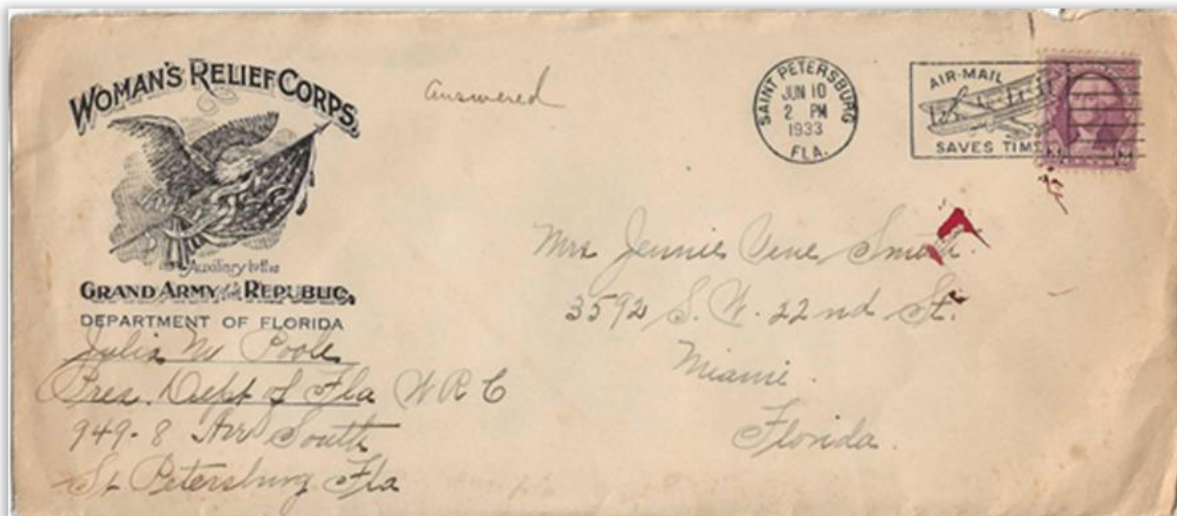 WOMAN'S RELIEF CORPS,
Auxiliary to the
GRAND ARMY of the REPUBLIC.
DEPARTMENT OF FLORIDA
Julia M Poole
Pres. Dept of Fla W R C
949-8 Ave South
St Petersburg Fla
answered
SAINT PETERSBURG
JUN 10
2 PM
1933
FLA.
AIR-MAIL
SAVES TIME
Mrs Jennie Smith.
3592 S. W. 22nd St.
Miami.
Florida.